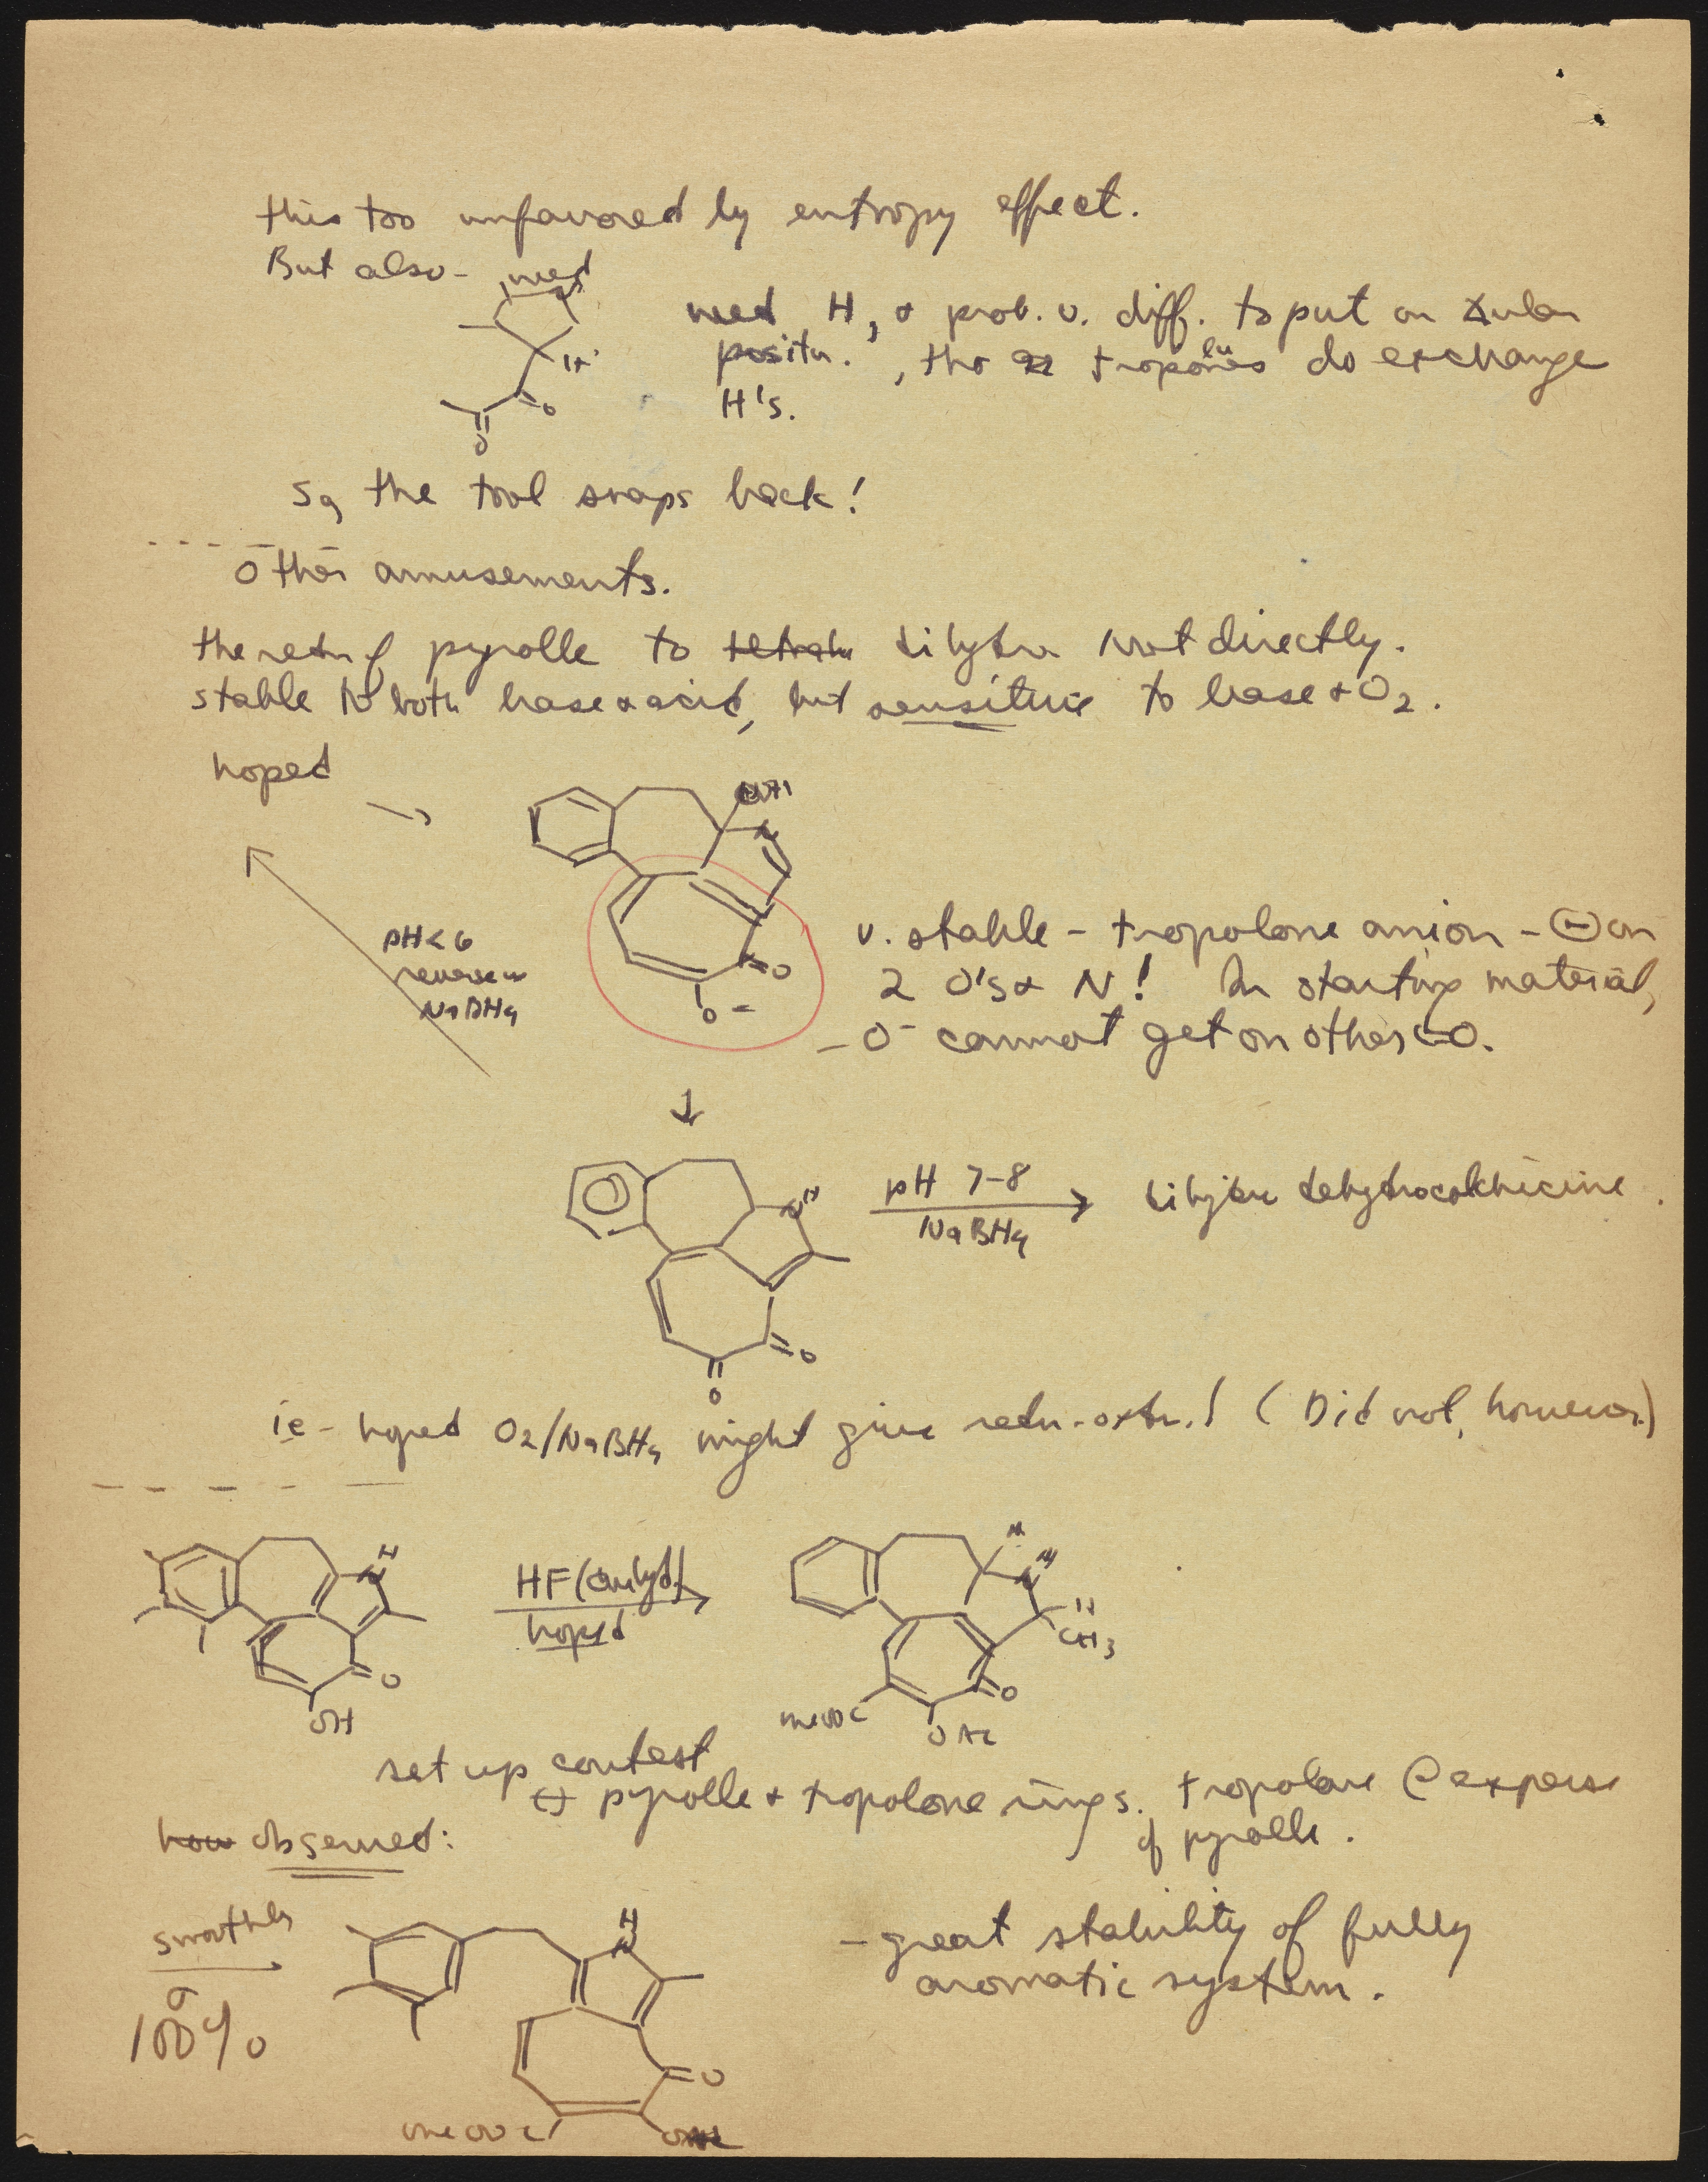 this too unfavored by entropy effect.
But also - need
H
O
O
need H, & prob. v. diff. to put on
positn., tho tropolones do exchange
H's.
So, the tool snaps back!
Other amusements.
the redn of pyrolle to dihydro not directly.
stable to both base & acid, but sensitive to base + O2.
hoped →
N
O
O-
pH<6
reverse w
NaBH4
v. stable - tropolone anion - ⊖ on
2 O's & N! In starting material,
- O- cannot get on other C=O.
↓
N
H
O
O
pH 7-8
NaBH4
dihydro dehydrocolchicine.
ie - hoped O2/NaBH4 might give redn-oxdn.! (Did not, however)
H
N
O
OH
HF (anhyd)
hoped
H
N
H
H
CH3
O
OAc
meooc
set up contest
↔ pyrolle & tropolone rings. tropolone @ expense
of pyrolle.
how observed:
smoothly
100%
H
N
O
meooc
- great stability of fully
aromatic system.